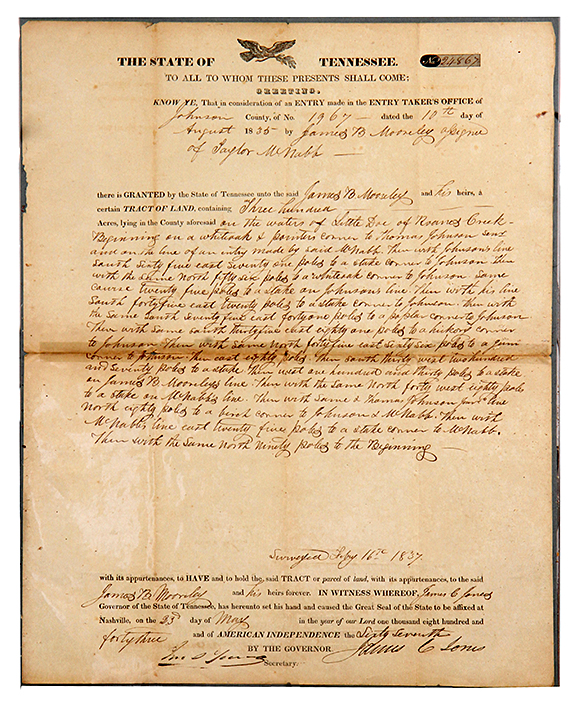 THE STATE OF TENNESSEE. No 24867
TO ALL TO WHOM THESE PRESENTS SHALL COME;
GREETING.
KNOW YE, That in consideration of an ENTRY made in the ENTRY TAKER'S OFFICE of
Johnson County, of No. 1967 dated the 10th day of
August 1835 by James B Mooreley
of Taylor McNabb
there is GRANTED by the State of Tennessee unto the said James B Mooreley and his heirs, a
certain TRACT OF LAND, containing Three hundred
Acres, lying in the County aforesaid on the waters of Little Doe of Roanes Creek
Beginning on a whiteoak & pointers corner to Thomas Johnson senr
and on the line of an entry made by said McNabb. Then with Johnson's line
South Sixty five east Seventy one poles to a stake corner to Johnson then
with the Same North fifty six poles to a whiteoak corner to Johnson Same
course twenty five poles to a stake on Johnsons line. Then with his line
South forty five east twenty poles to a stake corner to Johnson. then with
the Same South Seventy five east forty one poles to a poplar corner to Johnson
Then with Same South thirty five east eighty one poles to a hickory corner
to Johnson Then with Same North forty five east Sixty Six poles to a
corner to Johnson. Then east eighty poles. Then South thirty west two hundred
and Seventy poles to a stake. Then west one hundred and thirty poles to a stake
on James B Mooreleys line. Then with the Same North forty west eighty poles
to a stake on McNabbs line. Then with Same & Thomas Johnson line
North eighty poles to a birch corner to Johnson & McNabb. Then with
McNabb's line east twenty five poles to a stake corner to McNabb.
Then with the Same North Ninety poles to the Beginning
Surveyed Feby 16th 1837.
with its appurtenances, to HAVE and to hold the, said TRACT or parcel of land, with its appurtenances, to the said
James B Mooreley and his heirs forever. IN WITNESS WHEREOF, James C Jones
Governor of the State of Tennessee, has hereunto set his hand and caused the Great Seal of the State to be affixed at
Nashville, on the 23d day of May in the year of our Lord one thousand eight hundred and
forty three and of AMERICAN INDEPENDENCE the Sixty Seventh
BY THE GOVERNOR. James C Jones
Jno S Young Secretary.